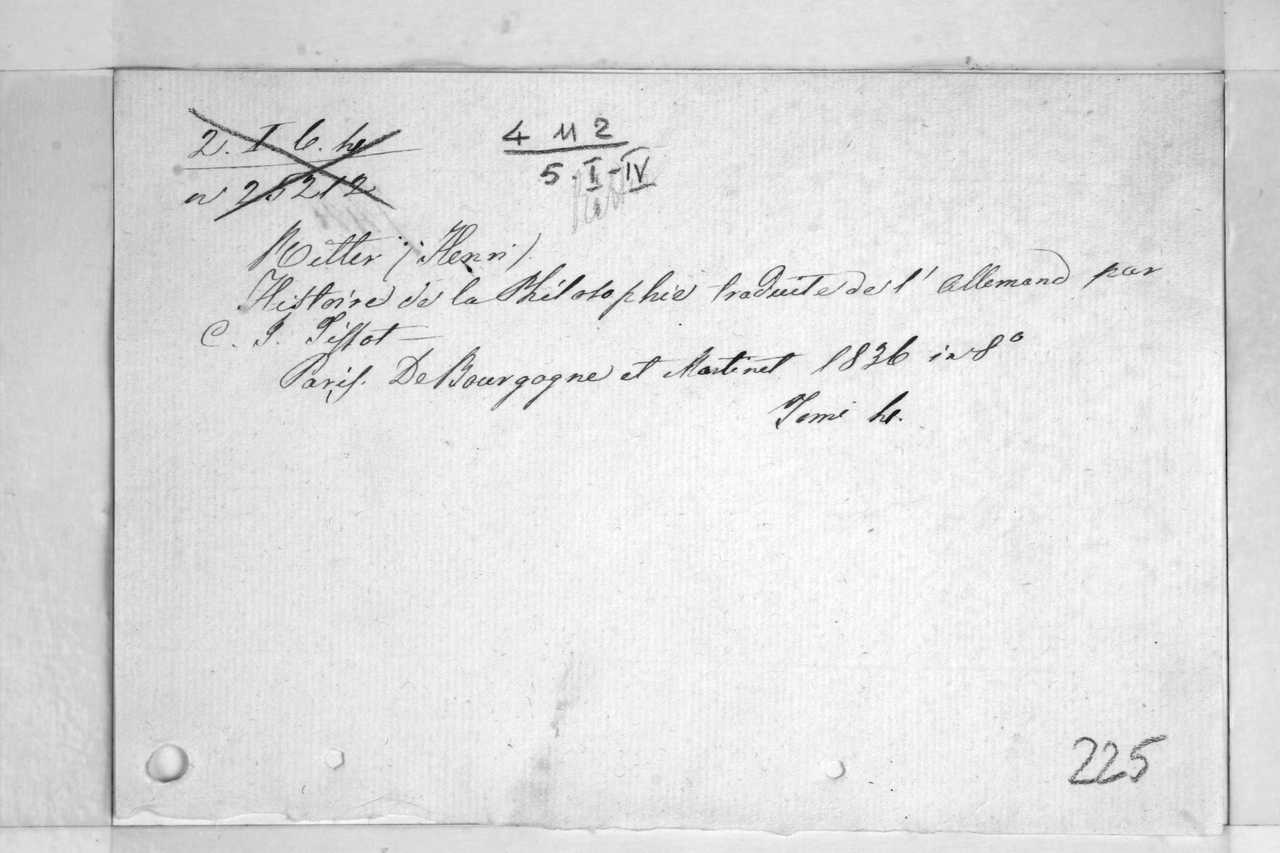 2. I 6. 4
n 25212
4 M 2
5. I-IV
Ritter (Henri)
Histoire de la Philosophie traduite de l' allemand par
C. J. Tissot –
Paris. De Bourgogne et Martinet 1836 in 8°
Tomi 4.
225